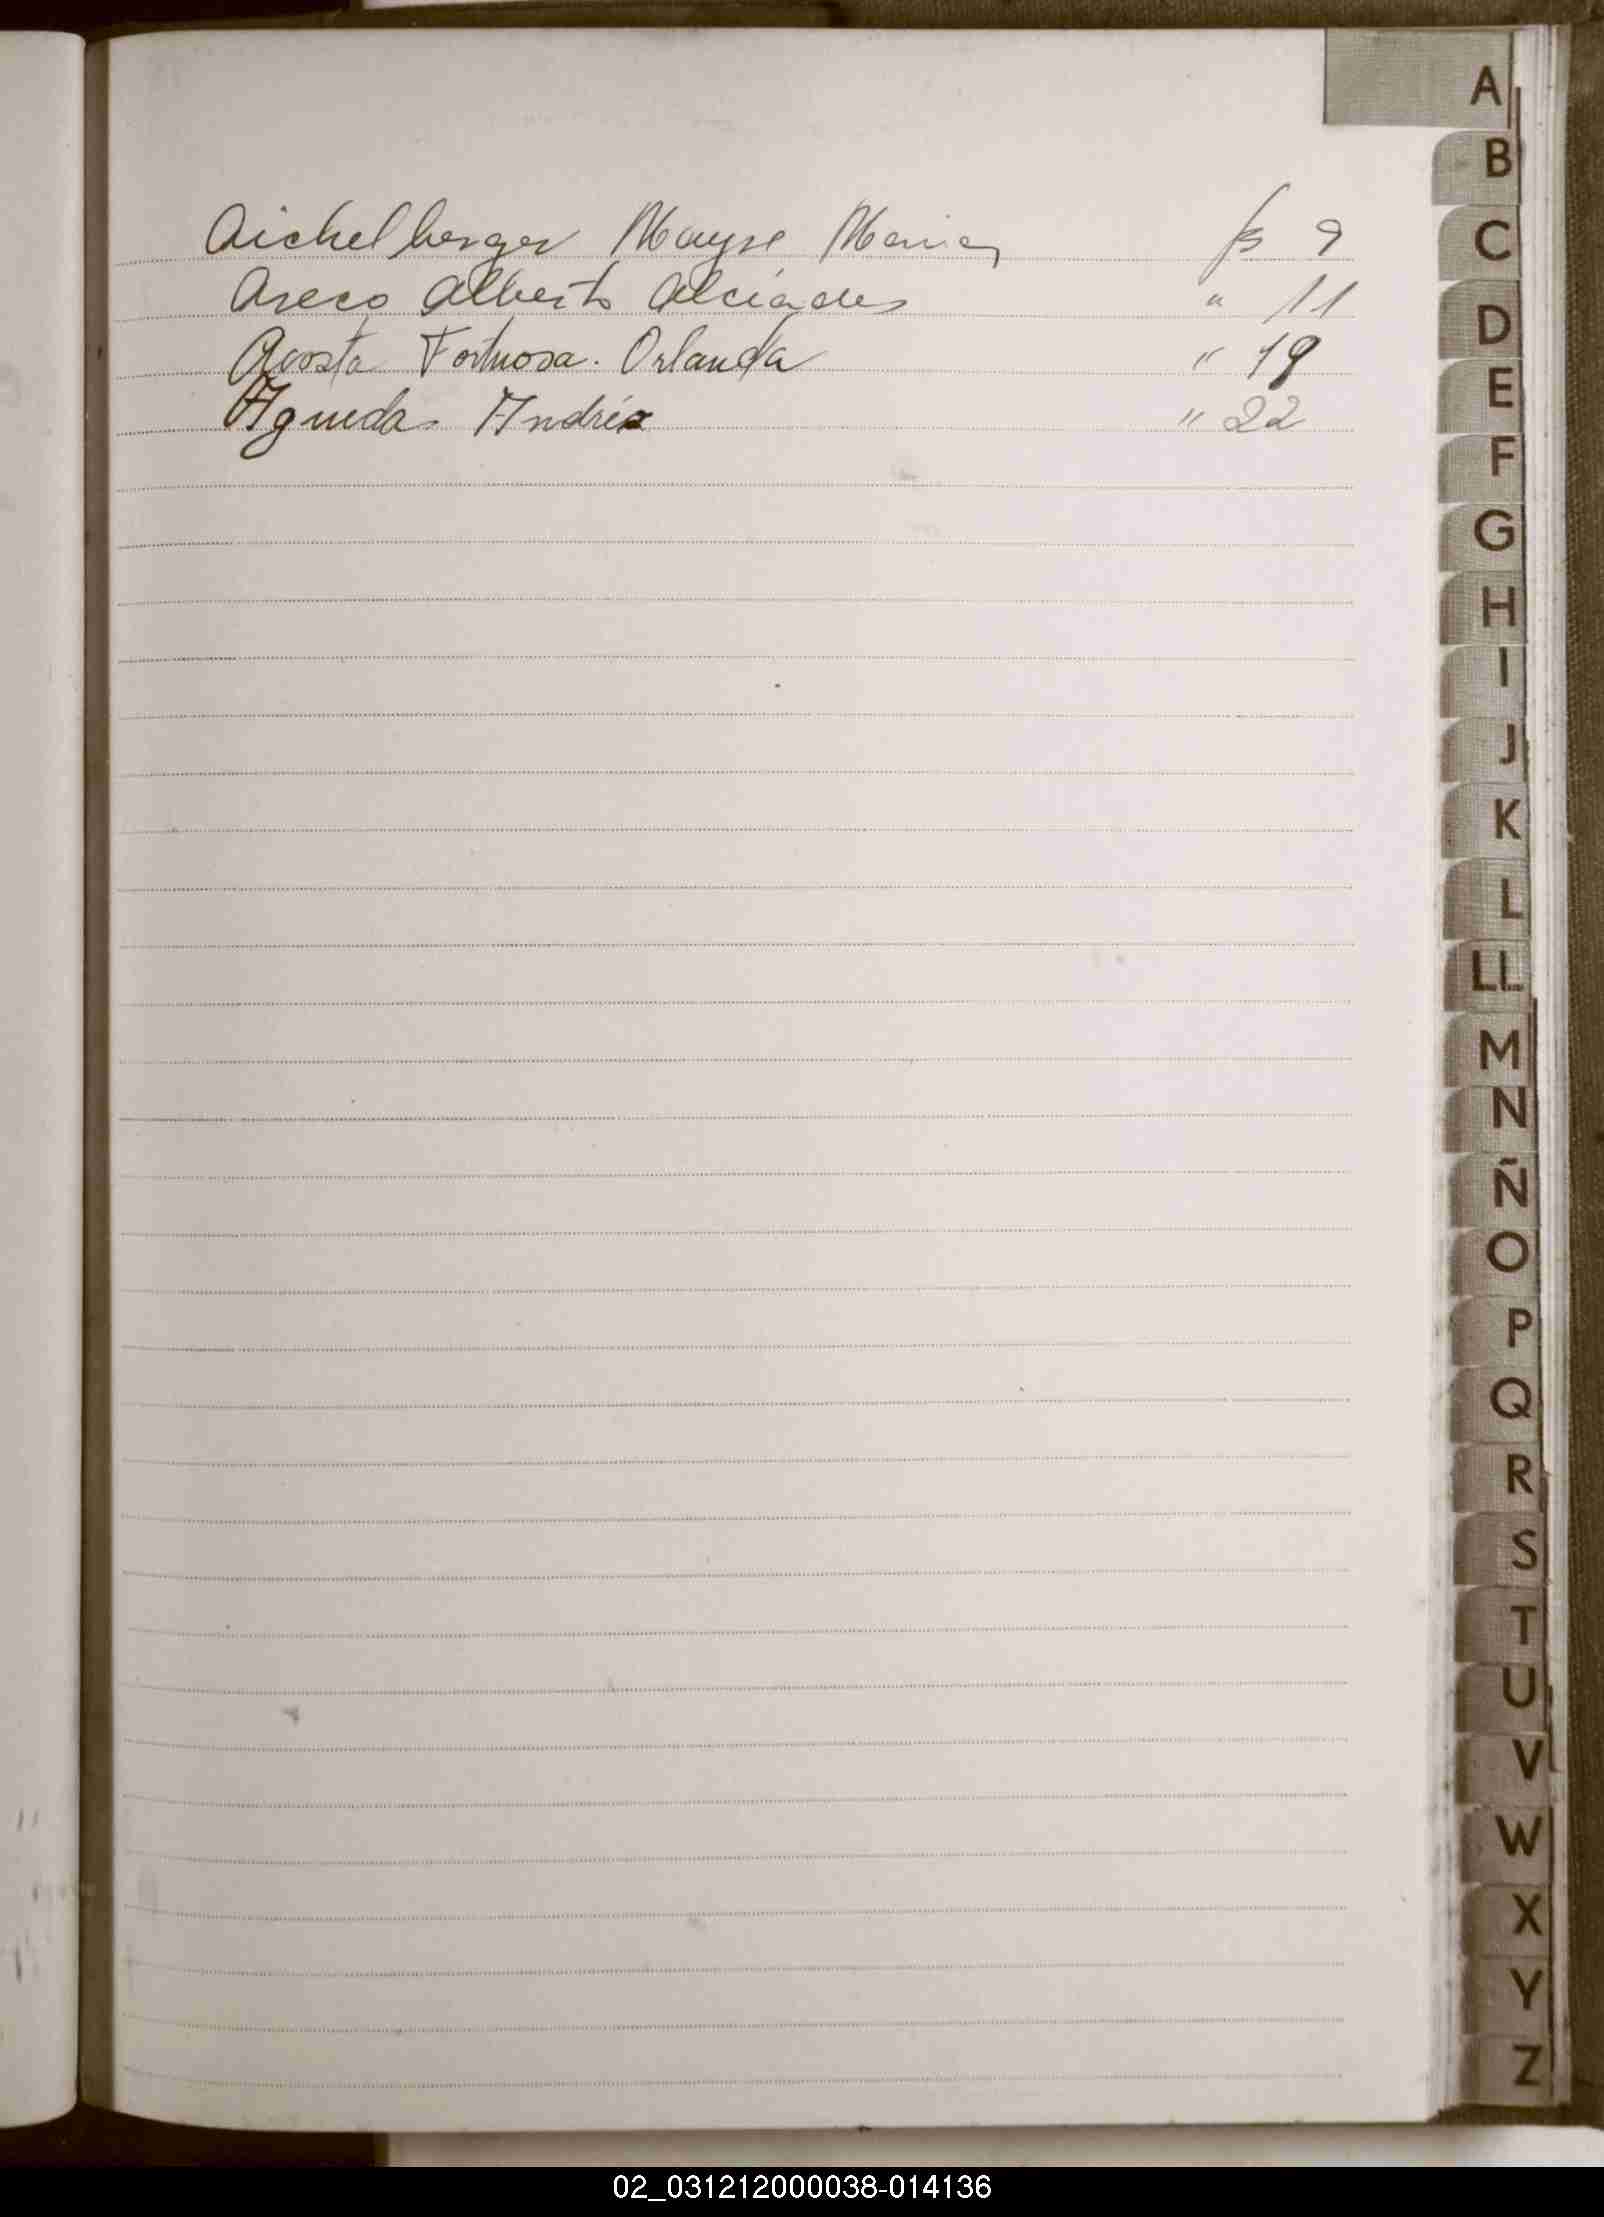 A
B
Aichelberger Mayse Maria fs 9
C
Areco Alberto Alciades " 11
D
Acosta Fortuosa. Orlanda " 19
E
Agueda Andréa " 22
F
G
H
I
J
K
L
LL
M
N
Ñ
O
P
Q
R
S
T
U
V
W
X
Y
Z
02_031212000038-014136